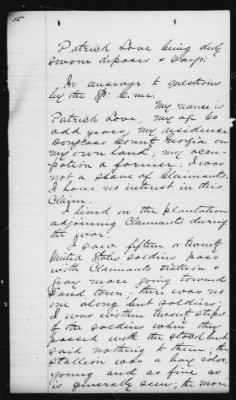 15
Patrick Love being duly
sworn deposes & says;
In answer to questions
by the Sp. Com.
My name is
Patrick Love, my age 60
odd years, my residence
Douglass County Georgia on
my own land, my occu-
pation a farmer. I was
not a slave of Claimants.
I have no interest in this
Claim.
I lived on the plantation
adjoining Claimants during
the war.
I saw fifteen or twenty
United States soldiers pass
with Claimants stallion &
gray mare going toward
Sand town; there was no
one along but soldiers;
I was within twenty steps
of the soldiers when they
passed with the stock but
said nothing to them; the
stallion was a bay color,
young and as fine as
is generally seen; the mare